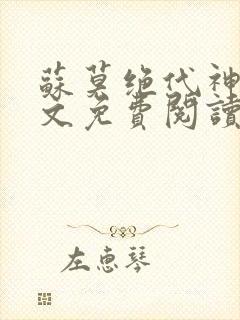 蘇莫绝代神
文免費閱讀
左惠琴